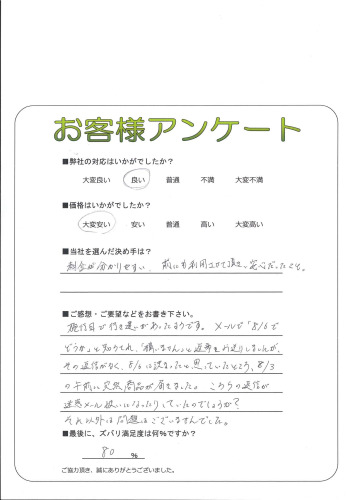 お客様アンケート
■弊社の対応はいかがでしたか？
大変良い 良い 普通 不満 大変不満
■価格はいかがでしたか？
大変安い 安い 普通 高い 大変高い
■当社を選んだ決め手は？
料金が分かりやすい、前にも利用させて頂き、安心だったこと。
■ご感想・ご要望などをお書き下さい。
施行日が行き違いがあったようです。メールで「8/6で
どうか」と知らされ、「構いません」と返事をお送りしましたが、
その返信がなく、8/6に決まったと思っていたところ、8/3
の午前に 商品が 着きました。こちらの返信が
迷惑メール扱いになったりしていたのでしょうか？
それ以外は問題はございませんでした。
■最後に、ズバリ満足度は何%ですか？
80 %
ご協力頂き、誠にありがとうございました。